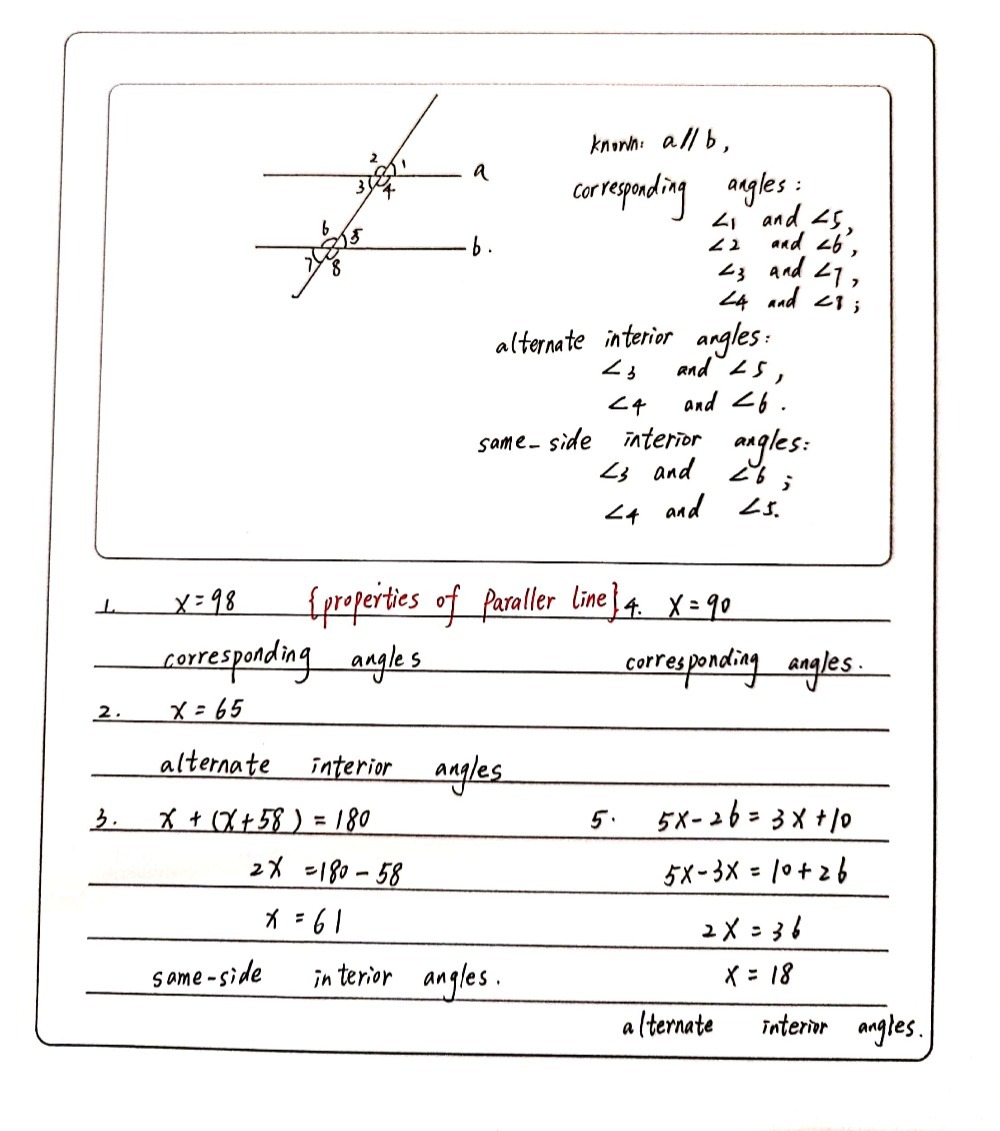 2 1
a
3 4
6 5
b.
7 8
known: a//b,
corresponding angles:
∠1 and ∠5,
∠2 and ∠6,
∠3 and ∠7,
∠4 and ∠8;
alternate interior angles:
∠3 and ∠5,
∠4 and ∠6.
same-side interior angles:
∠3 and ∠6;
∠4 and ∠5.
{properties of Paraller line}
1. x=98
corresponding angles
2. x=65
alternate interior angles
3. x+(x+58)=180
2x=180-58
x=61
same-side interior angles.
4. x=90
corresponding angles.
5. 5x-26=3x+10
5x-3x=10+26
2x=36
x=18
alternate interior angles.